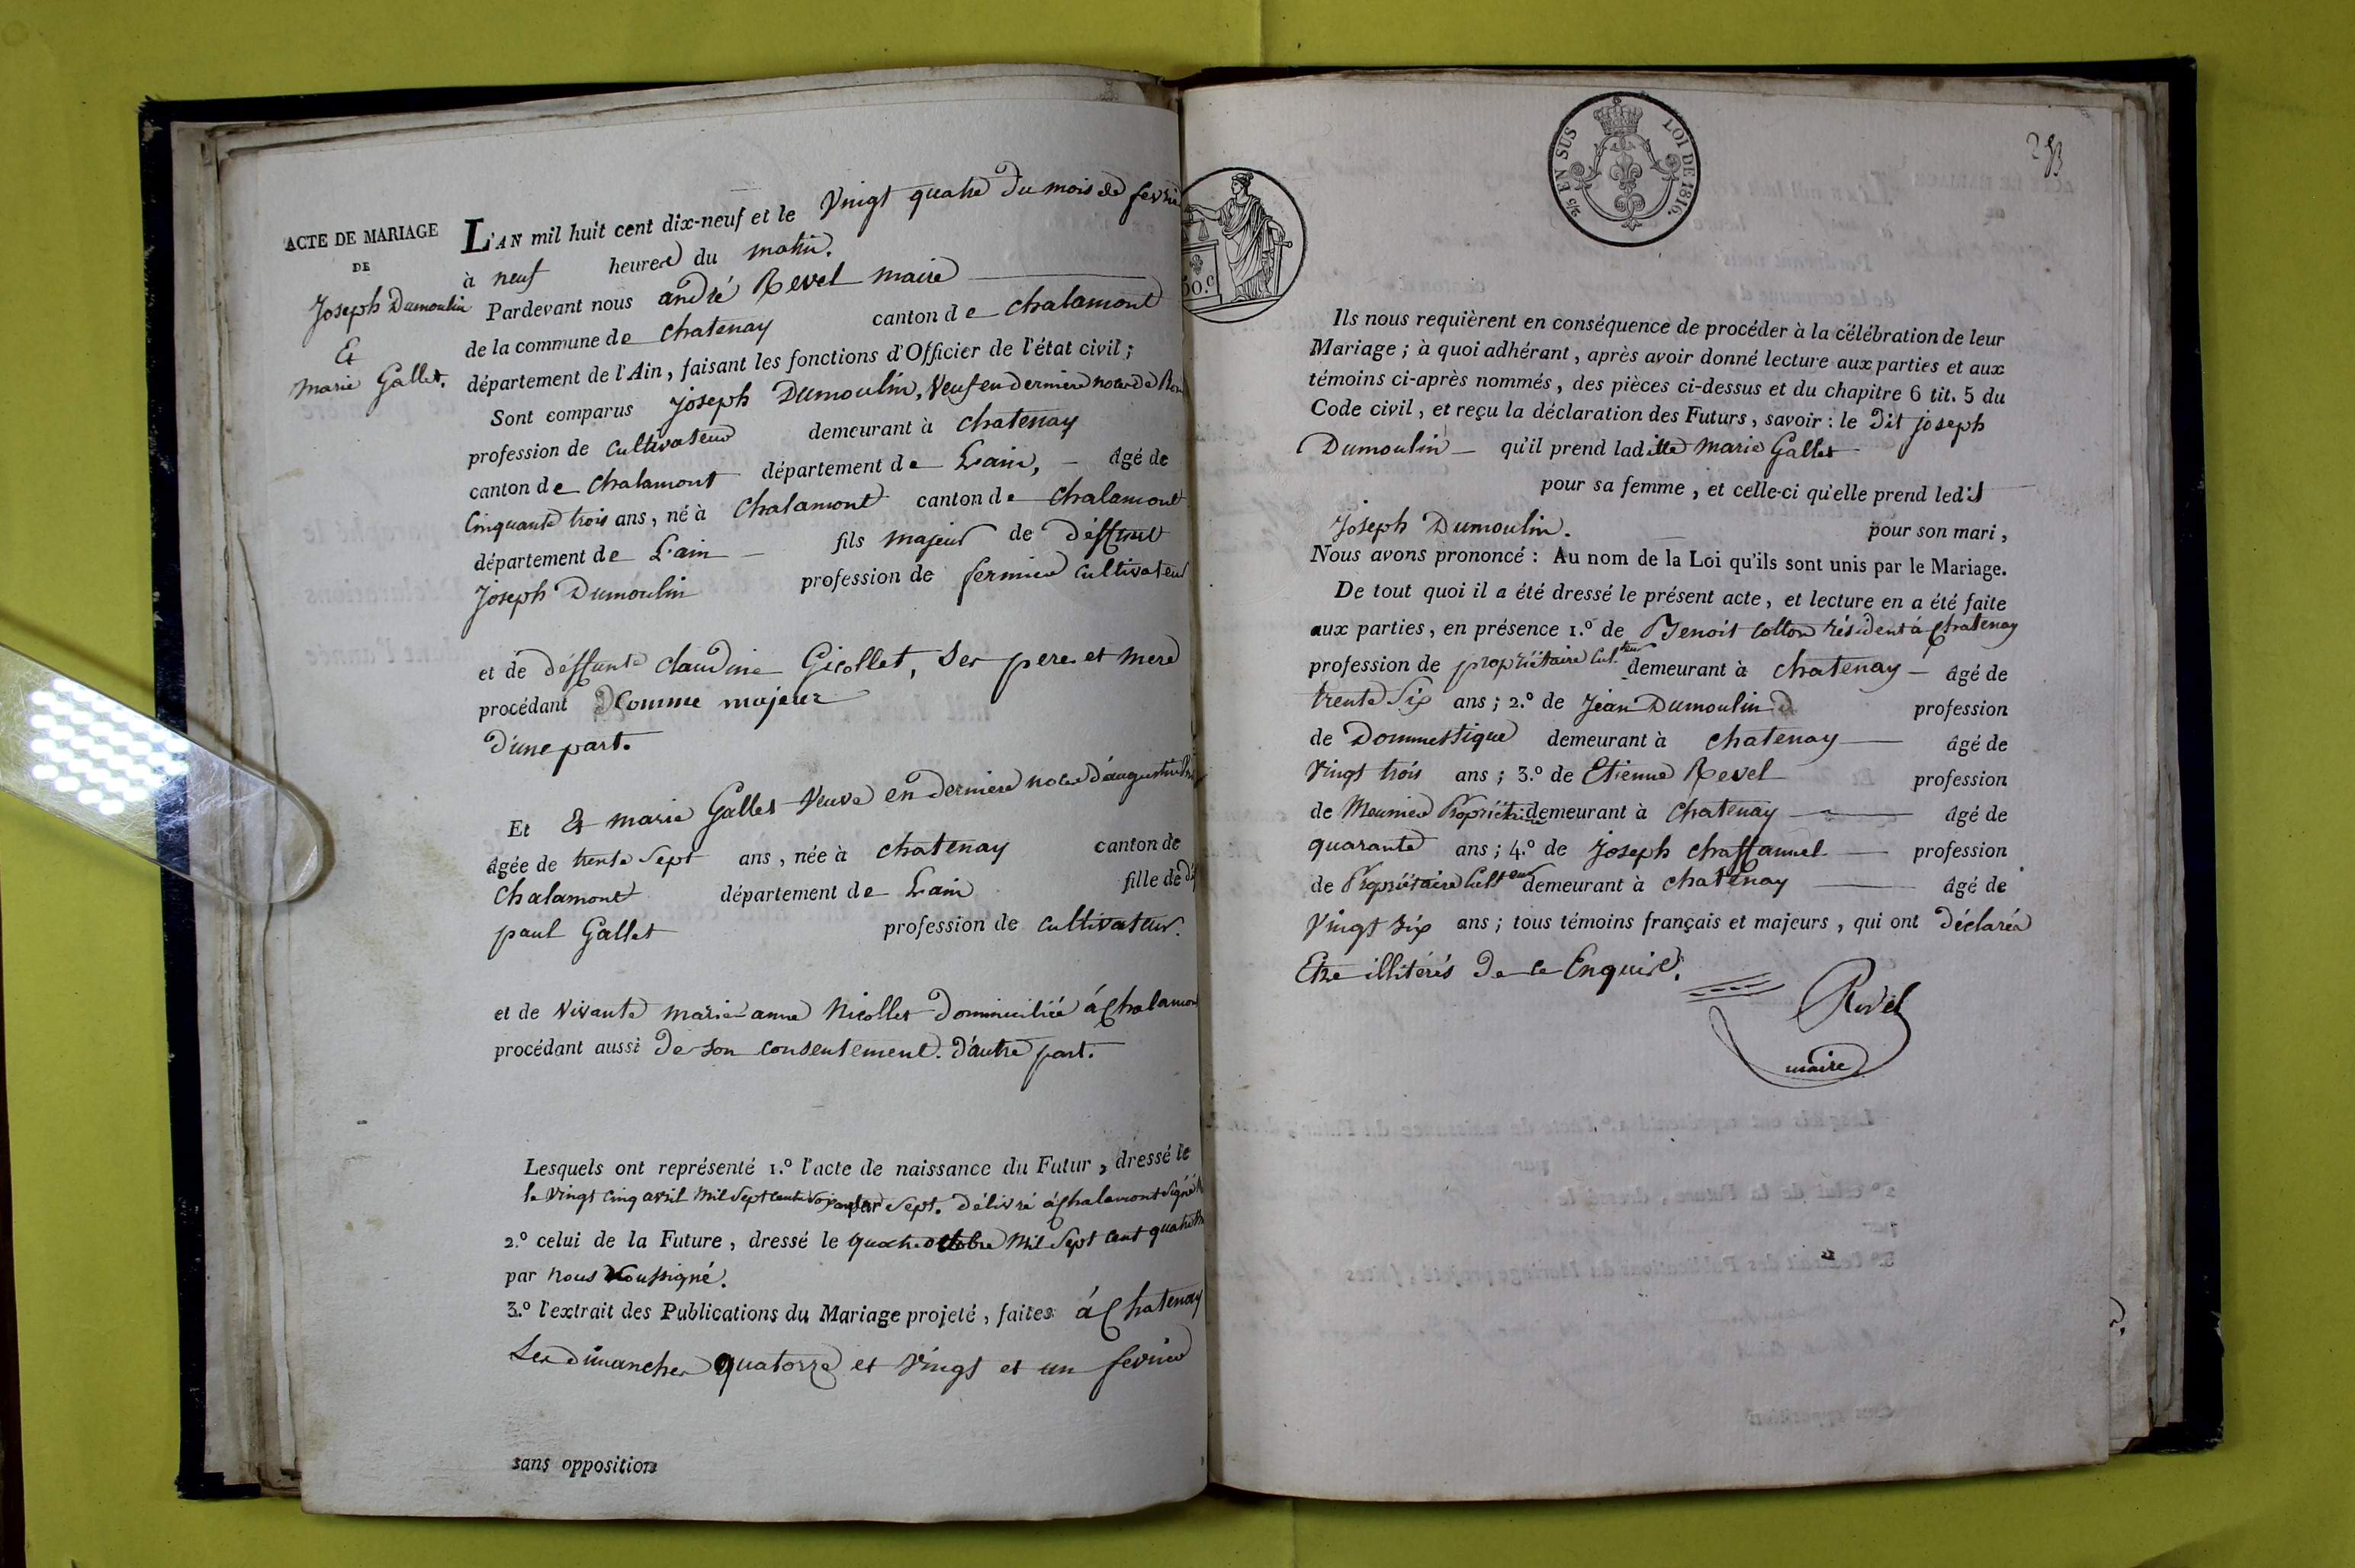 ACTE DE MARIAGE
DE
Joseph Dumoulin
Et
marie Gallet.
L'AN mil huit cent dix-neuf et le Vingt quatre du mois de fevrie
à neuf heures du matin.
Pardevant nous andré Revel maire
de la commune de chatenay canton de chalamont
département de l'Ain, faisant les fonctions d'Officier de l'état civil;
Sont comparus Joseph Dumoulin, Veuf en derniere noces de
profession de Cultivateur demeurant à chatenay
canton de chalamont département de L'ain, âgé de
Cinquante trois ans, né à chalamont canton de chalamont
département de L'ain fils majeur de déffunt
Joseph Dumoulin profession de fermier cultivateur
et de déffunte claudine Gicollet, Ses pere et mere
procédant Comme majeur
d'une part.
Et Et marie Gallet Veuve en derniere noces d'augustin
âgée de trente Sept ans, née à chatenay canton de
Chalamont département de L'ain fille de
paul Gallet profession de cultivateur.
et de Vivante marie anne Nicollet Dominiciliée á chalamon
procédant aussi de son consentement. d'autre part.
Lesquels ont représenté 1.° l'acte de naissance du Futur, dressé le
le Vingt Cinq avril Mil Sept Cents Sept. délivré á chalamont Signé
2.° celui de la Future, dressé le quatre octobre Mil Sept Cent quatre
par nous Soussigné.
3.° l'extrait des Publications du Mariage projeté, faites á chatenay
Les dimanches quatorze et Vingt et un fevrier
sans opposition
50.c
2/5 EN SUS LOI DE 1816.
Ils nous requièrent en conséquence de procéder à la célébration de leur
Mariage; à quoi adhérant, après avoir donné lecture aux parties et aux
témoins ci-après nommés, des pièces ci-dessus et du chapitre 6 tit. 5 du
Code civil, et reçu la déclaration des Futurs, savoir: le dit joseph
Dumoulin qu'il prend laditte marie Gallet
pour sa femme, et celle-ci qu'elle prend ledit
Joseph Dumoulin. pour son mari,
Nous avons prononcé: Au nom de la Loi qu'ils sont unis par le Mariage.
De tout quoi il a été dressé le présent acte, et lecture en a été faite
aux parties, en présence 1.° de Benoit Cotton résident á chatenay
profession de propriétaire Cult.teur demeurant à chatenay âgé de
trente Six ans; 2.° de Jean Dumoulin profession
de Dommestique demeurant à chatenay âgé de
Vingt trois ans; 3.° de Etienne Revel profession
de Meunier Propriétaire demeurant à chatenay âgé de
quarante ans; 4.° de Joseph chaffannel profession
de Propriétaire Culteur demeurant à chatenay âgé de
Vingt Six ans; tous témoins français et majeurs, qui ont déclarés
Etre illitérés de ce Enquis.
Revel
maire